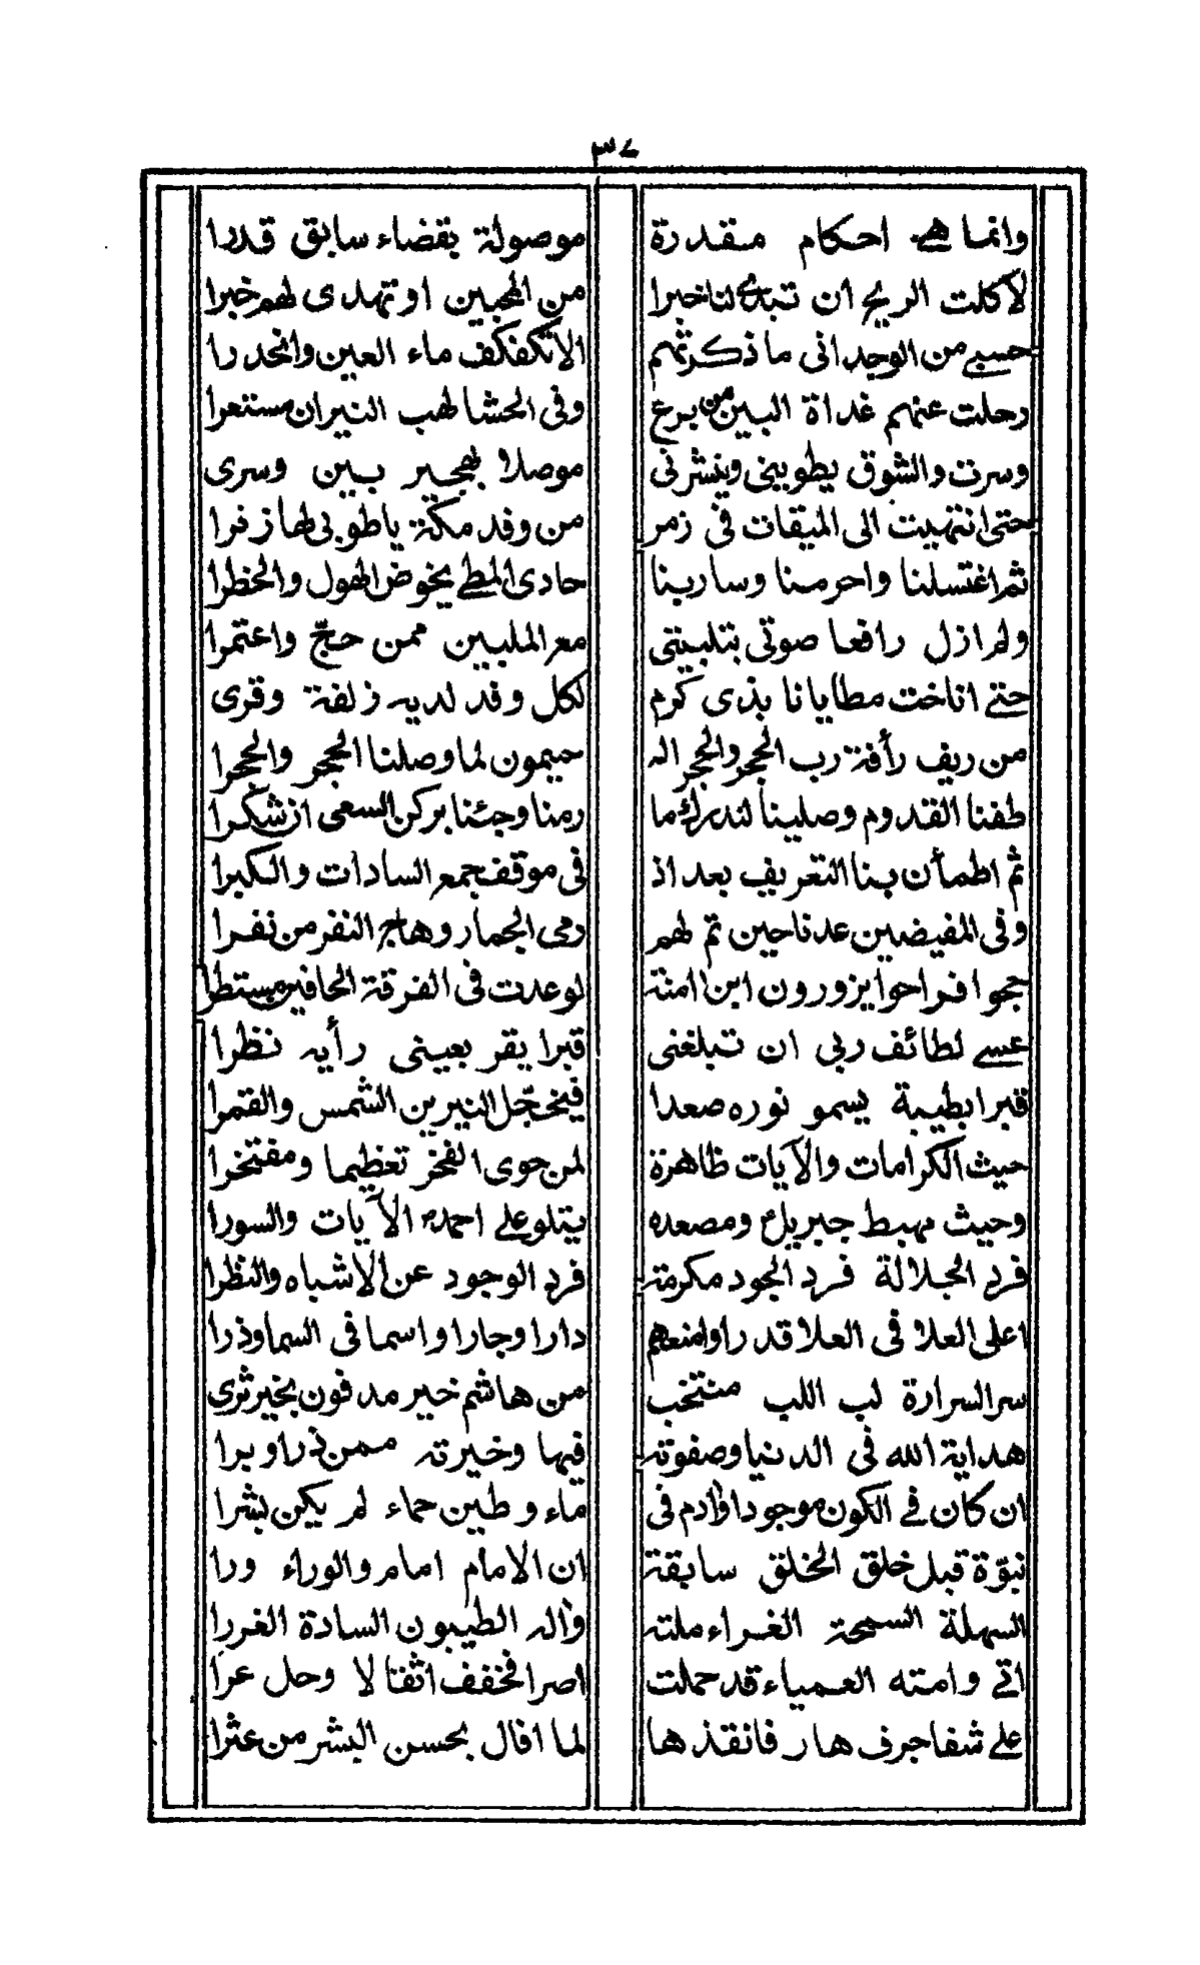 ٣٧
وانما هي احكام مقدرة موصولة بقضاء سابق قدرا
لا كلت الريح ان تبدى لنا خبرا من المحبين او تهدى لهم خبرا
حسبي من الوجد انى ما ذكرتهم الا تكفكف ماء العين وانحدرا
رحلت عنهم غداة البين من برع وفى الحشا لهب النيران مستعرا
وسرت والشوق يطوينى وينشرنى موصلا بهجير بين وسرى
حتى انتهيت الى الميقات فى زمر من وفد مكة يا طوبى لها زفرا
ثم اغتسلنا واحرمنا وسار بنا حادى المطي يخوض الهول والخطرا
ولم ازل رافعا صوتى بتلبيتى مع الملبيين ممن حجّ واعتمرا
حتى اناخت مطايانا بذى كرم لكل وفد لديه زلفة وقرى
من ريف رأفة رب الحجر والحجر الـ ميمون لما وصلنا الحجر والحجرا
طفنا القدوم وصلينا لندرك ما رمنا وجئنا بركن السعى ان شكرا
ثم اطمأن بنا التعريف بعد اذ فى موقف جمع السادات والكبرا
وفى المفيضين عدنا حين تم لهم رمى الجمار وهاج النفر من نفرا
حجوا افراحوا يزورون ابن امنة لو عدت فى الفرقة الحافين مستطرا
عسى لطائف ربى ان تبلغنى قبرا يقر بعينى رأيه نظرا
قبرا بطيبة يسمو نوره صعدا فيخجّل النيرين الشمس والقمرا
حيث الكرامات والآيات ظاهرة لمن حوى الفخر تعظيما ومفتخرا
وحيث مهبط جبريل ومصعده يتلو على احمد الآيات والسورا
فرد الجلالة فرد الجود مكرمة فرد الوجود عن الاشباه والنظرا
اعلى العلا فى العلا قدرا وامنعهم دارا وجارا واسما فى السما وذرا
سر السرارة لب اللب منتخب من هاشم خير مدفون بخير ثرى
هداية الله فى الدنيا وصفوته فيها وخيرته ممن ذرا وبرا
ان كان في الكون موجودا وادم فى ماء وطين حماء لم يكن بشرا
نبوّة قبل خلق الخلق سابقة ان الامام امام والوراء ورا
السهلة السمحة الغراء ملته واله الطيبون السادة الغررا
اتى وامته العمياء قد حملت اصرا فخفف اثقالا وحل عرا
على شفا جرف هار فانقذها لما اقال بحسن البشر من عثرا